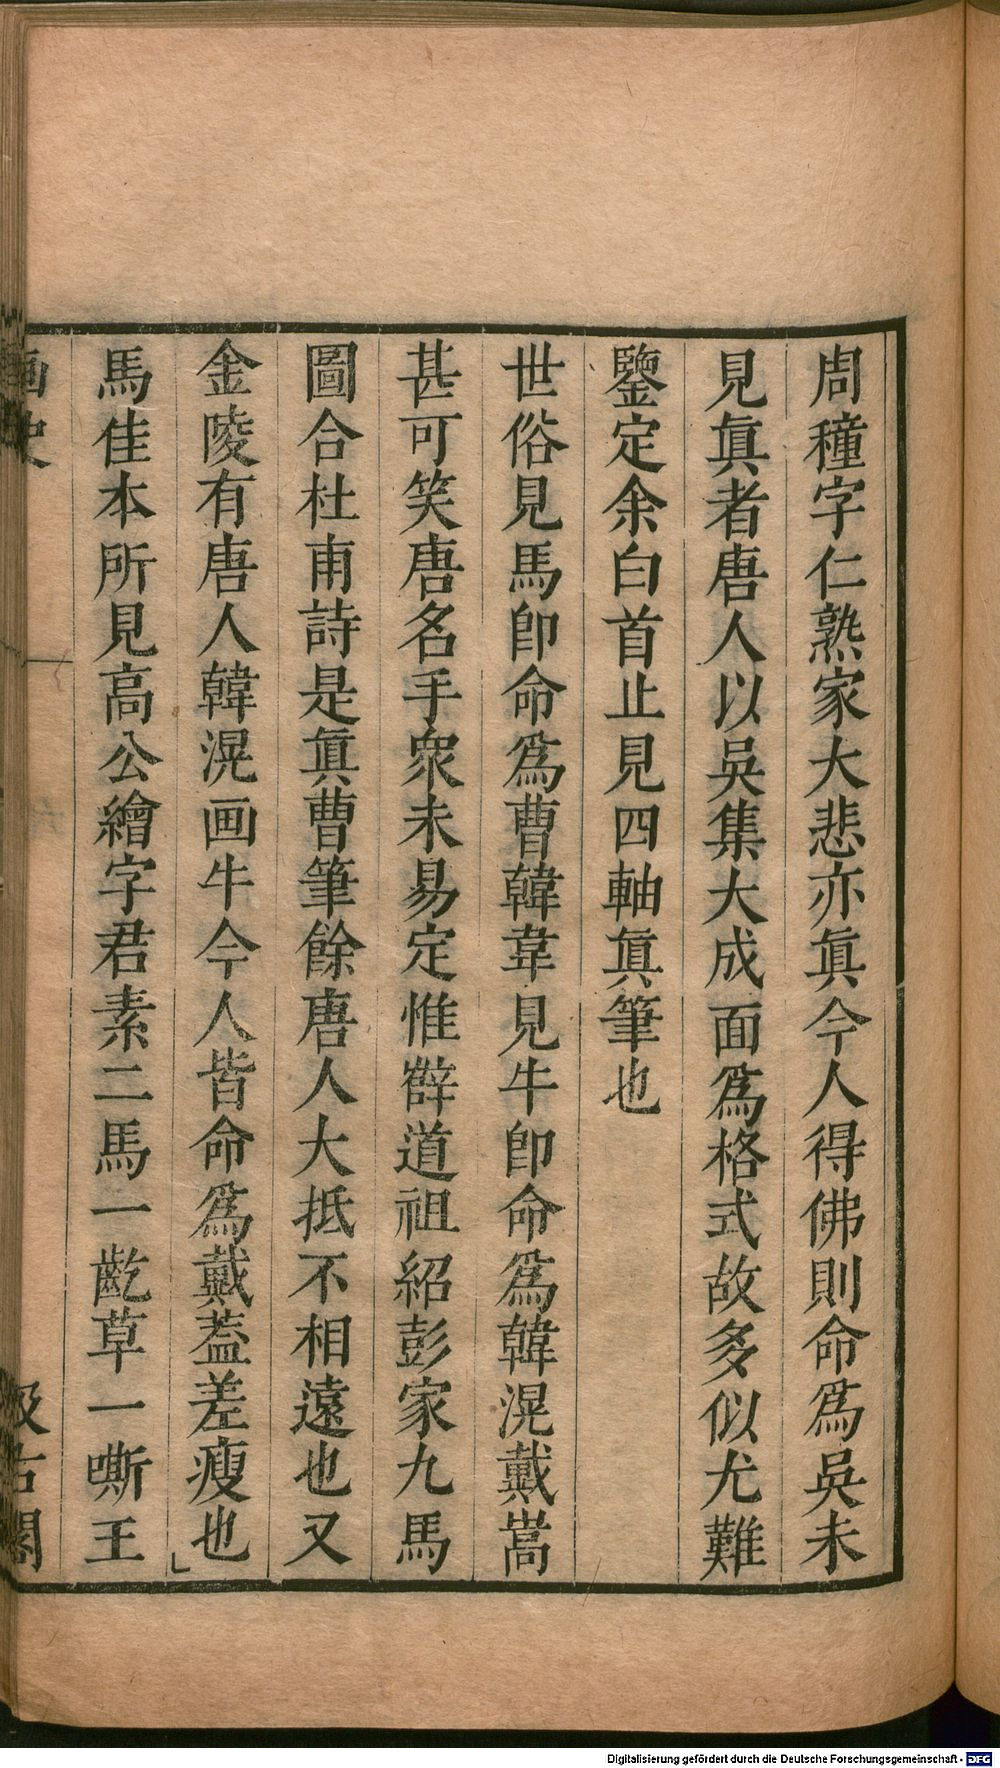 周穜字仁熟家大悲亦眞今人得佛則命爲吳未
見眞者唐人以吳集大成面爲格式故多似尤難
鑒定余白首止見四軸眞筆也
世俗見馬卽命爲曹韓韋見牛卽命爲韓滉戴嵩
甚可笑唐名手衆未易定惟薛道祖紹彭家九馬
圖合杜甫詩是眞曹筆餘唐人大抵不相遠也又
金陵有唐人韓滉画牛今人皆命爲戴葢差瘦也
馬佳本所見高公繪字君素二馬一齕草一嘶王
画史
汲古閣
Digitalisierung gefördert durch die Deutsche Forschungsgemeinschaft - DFG